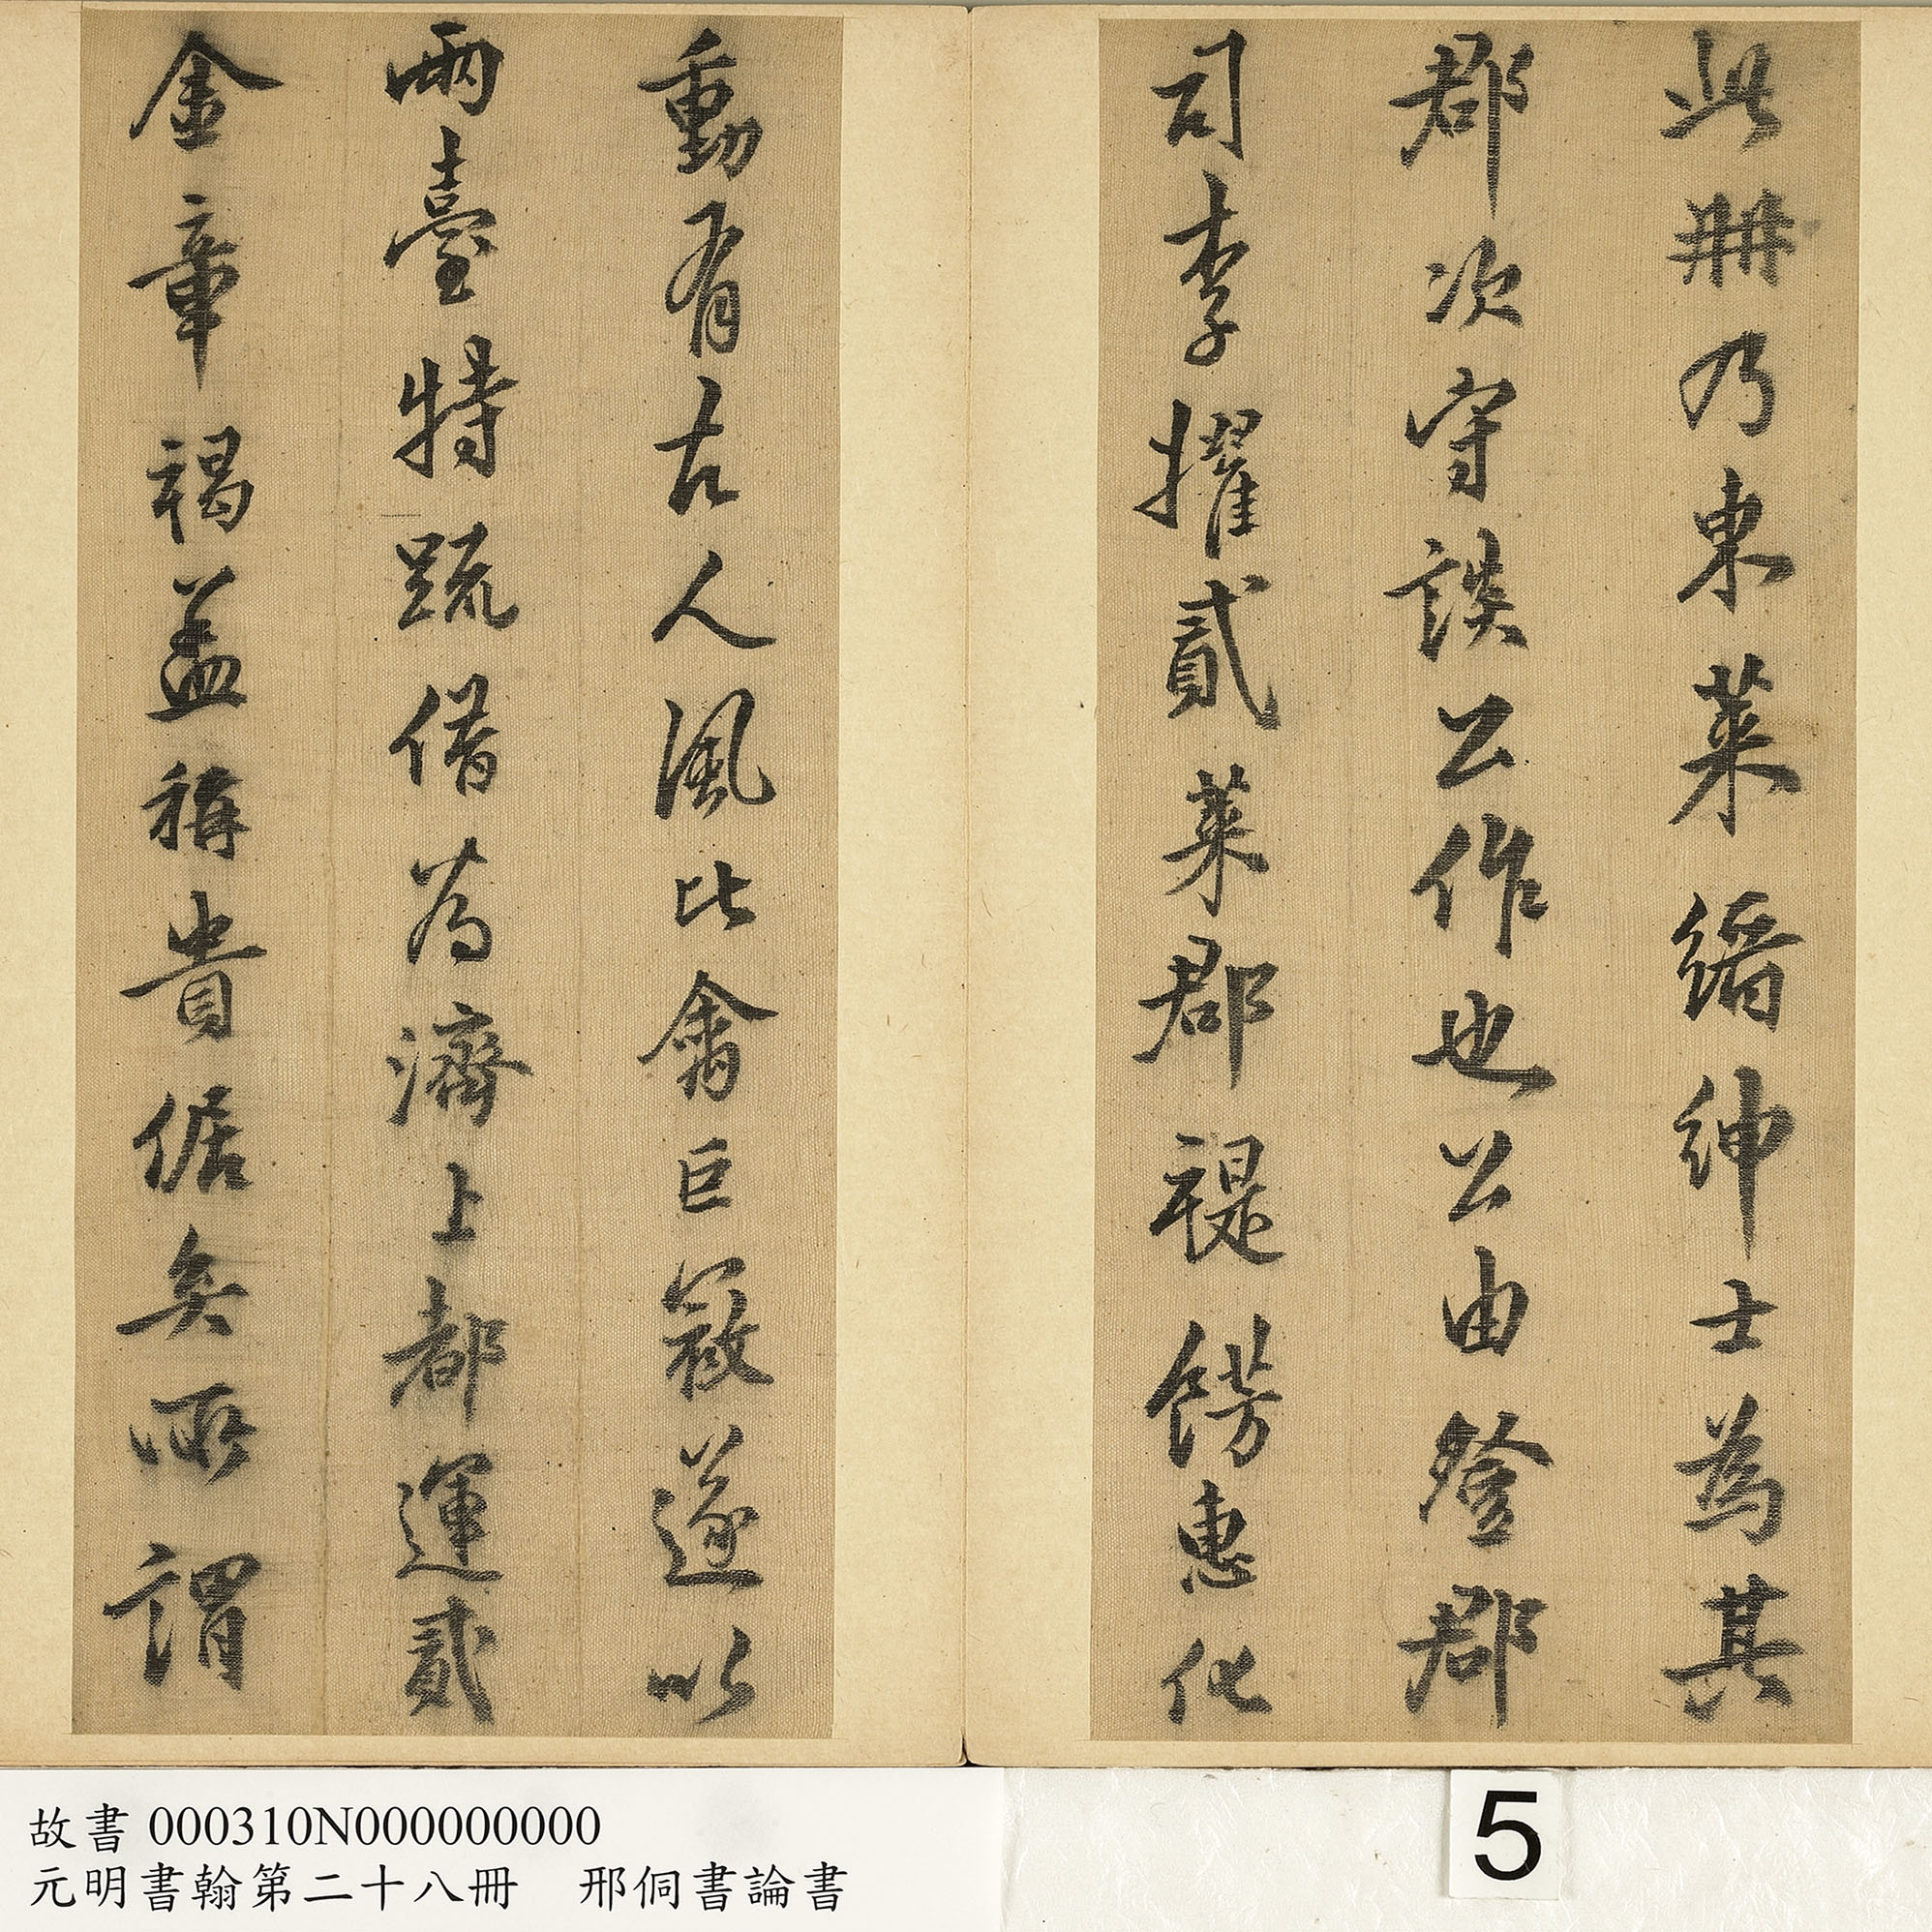 此冊乃東萊縉紳士為其
郡次守談公作也公由登郡
司李擢貳萊郡禔躬惠化
動有古人風比禽巨寇遂以
兩臺特疏借為濟上都運貳
金章褐蓋稱貴倨矣所謂
故書 000310N000000000
元明書翰第二十八冊 邢侗書論書
5